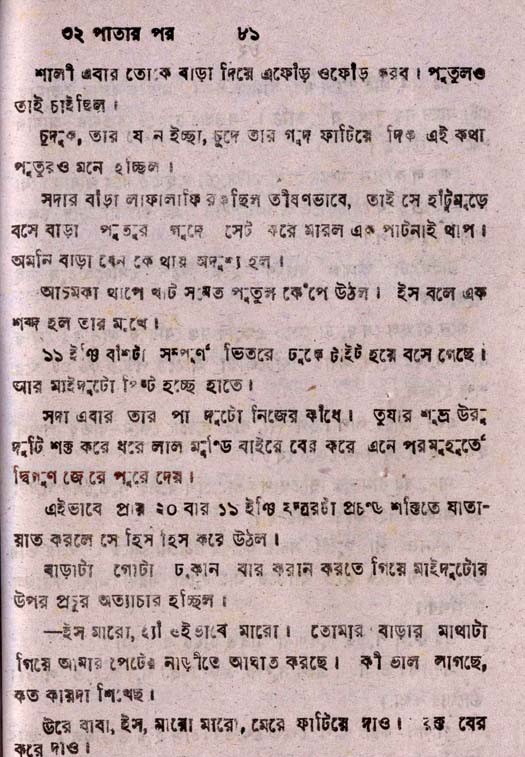 ৩২ পাতার পর ৮১
শালী এবার তোকে বাড়া দিয়ে এফোঁড় ওফোঁড় করব। পুতুলও
তাই চাইছিল।
চুদুক, তার যেন ইচ্ছা, চুদে তার গুদ ফাটিয়ে দিক এই কথা
পুতুরও মনে হচ্ছিল।
সদার বাঁড়া লাফালাফি করছিল ভীষণভাবে, তাই সে হাঁটুমুড়ে
বসে বাড়া পুতুর গুদে সেট করে মারল এক পাটনাই থাপ।
অমনি বাড়া যেন কোথায় অদৃশ্য হল।
আচমকা থাপে খাট সমেত পুতুল কেঁপে উঠল। ইস বলে এক
শব্দ হল তার মুখে।
১১ ইঞ্চি বাঁশটা সম্পূর্ণ ভিতরে ঢুকে টাইট হয়ে বসে গেছে।
আর মাইদুটো পিষ্ট হচ্ছে হাতে।
সদা এবার তার পা দুটো নিজের কাঁধে। তুষার শুভ্র উরু
দুটি শক্ত করে ধরে লাল মুণ্ডি বাইরে বের করে এনে পরমুহূর্তে
দ্বিগুণ জোরে পুরে দেয়।
এইভাবে প্রায় ২০ বার ১১ ইঞ্চি যন্ত্ররটা প্রচণ্ড শক্তিতে যাতা-
য়াত করলে সে হিস হিস করে উঠল।
বাড়াটা গোটা ঢুকান বার করান করতে গিয়ে মাইদুটোর
উপর প্রচুর অত্যাচার হচ্ছিল।
—ইস মারো, হ্যাঁ ওইভাবে মারো। তোমার বাড়ার মাথাটা
গিয়ে আমার পেটের নাড়ীতে আঘাত করছে। কী ভাল লাগছে,
কত কায়দা শিখেছ।
উরে বাবা, ইস, মারো মারো, মেরে ফাটিয়ে দাও। রক্ত বের
করে দাও।